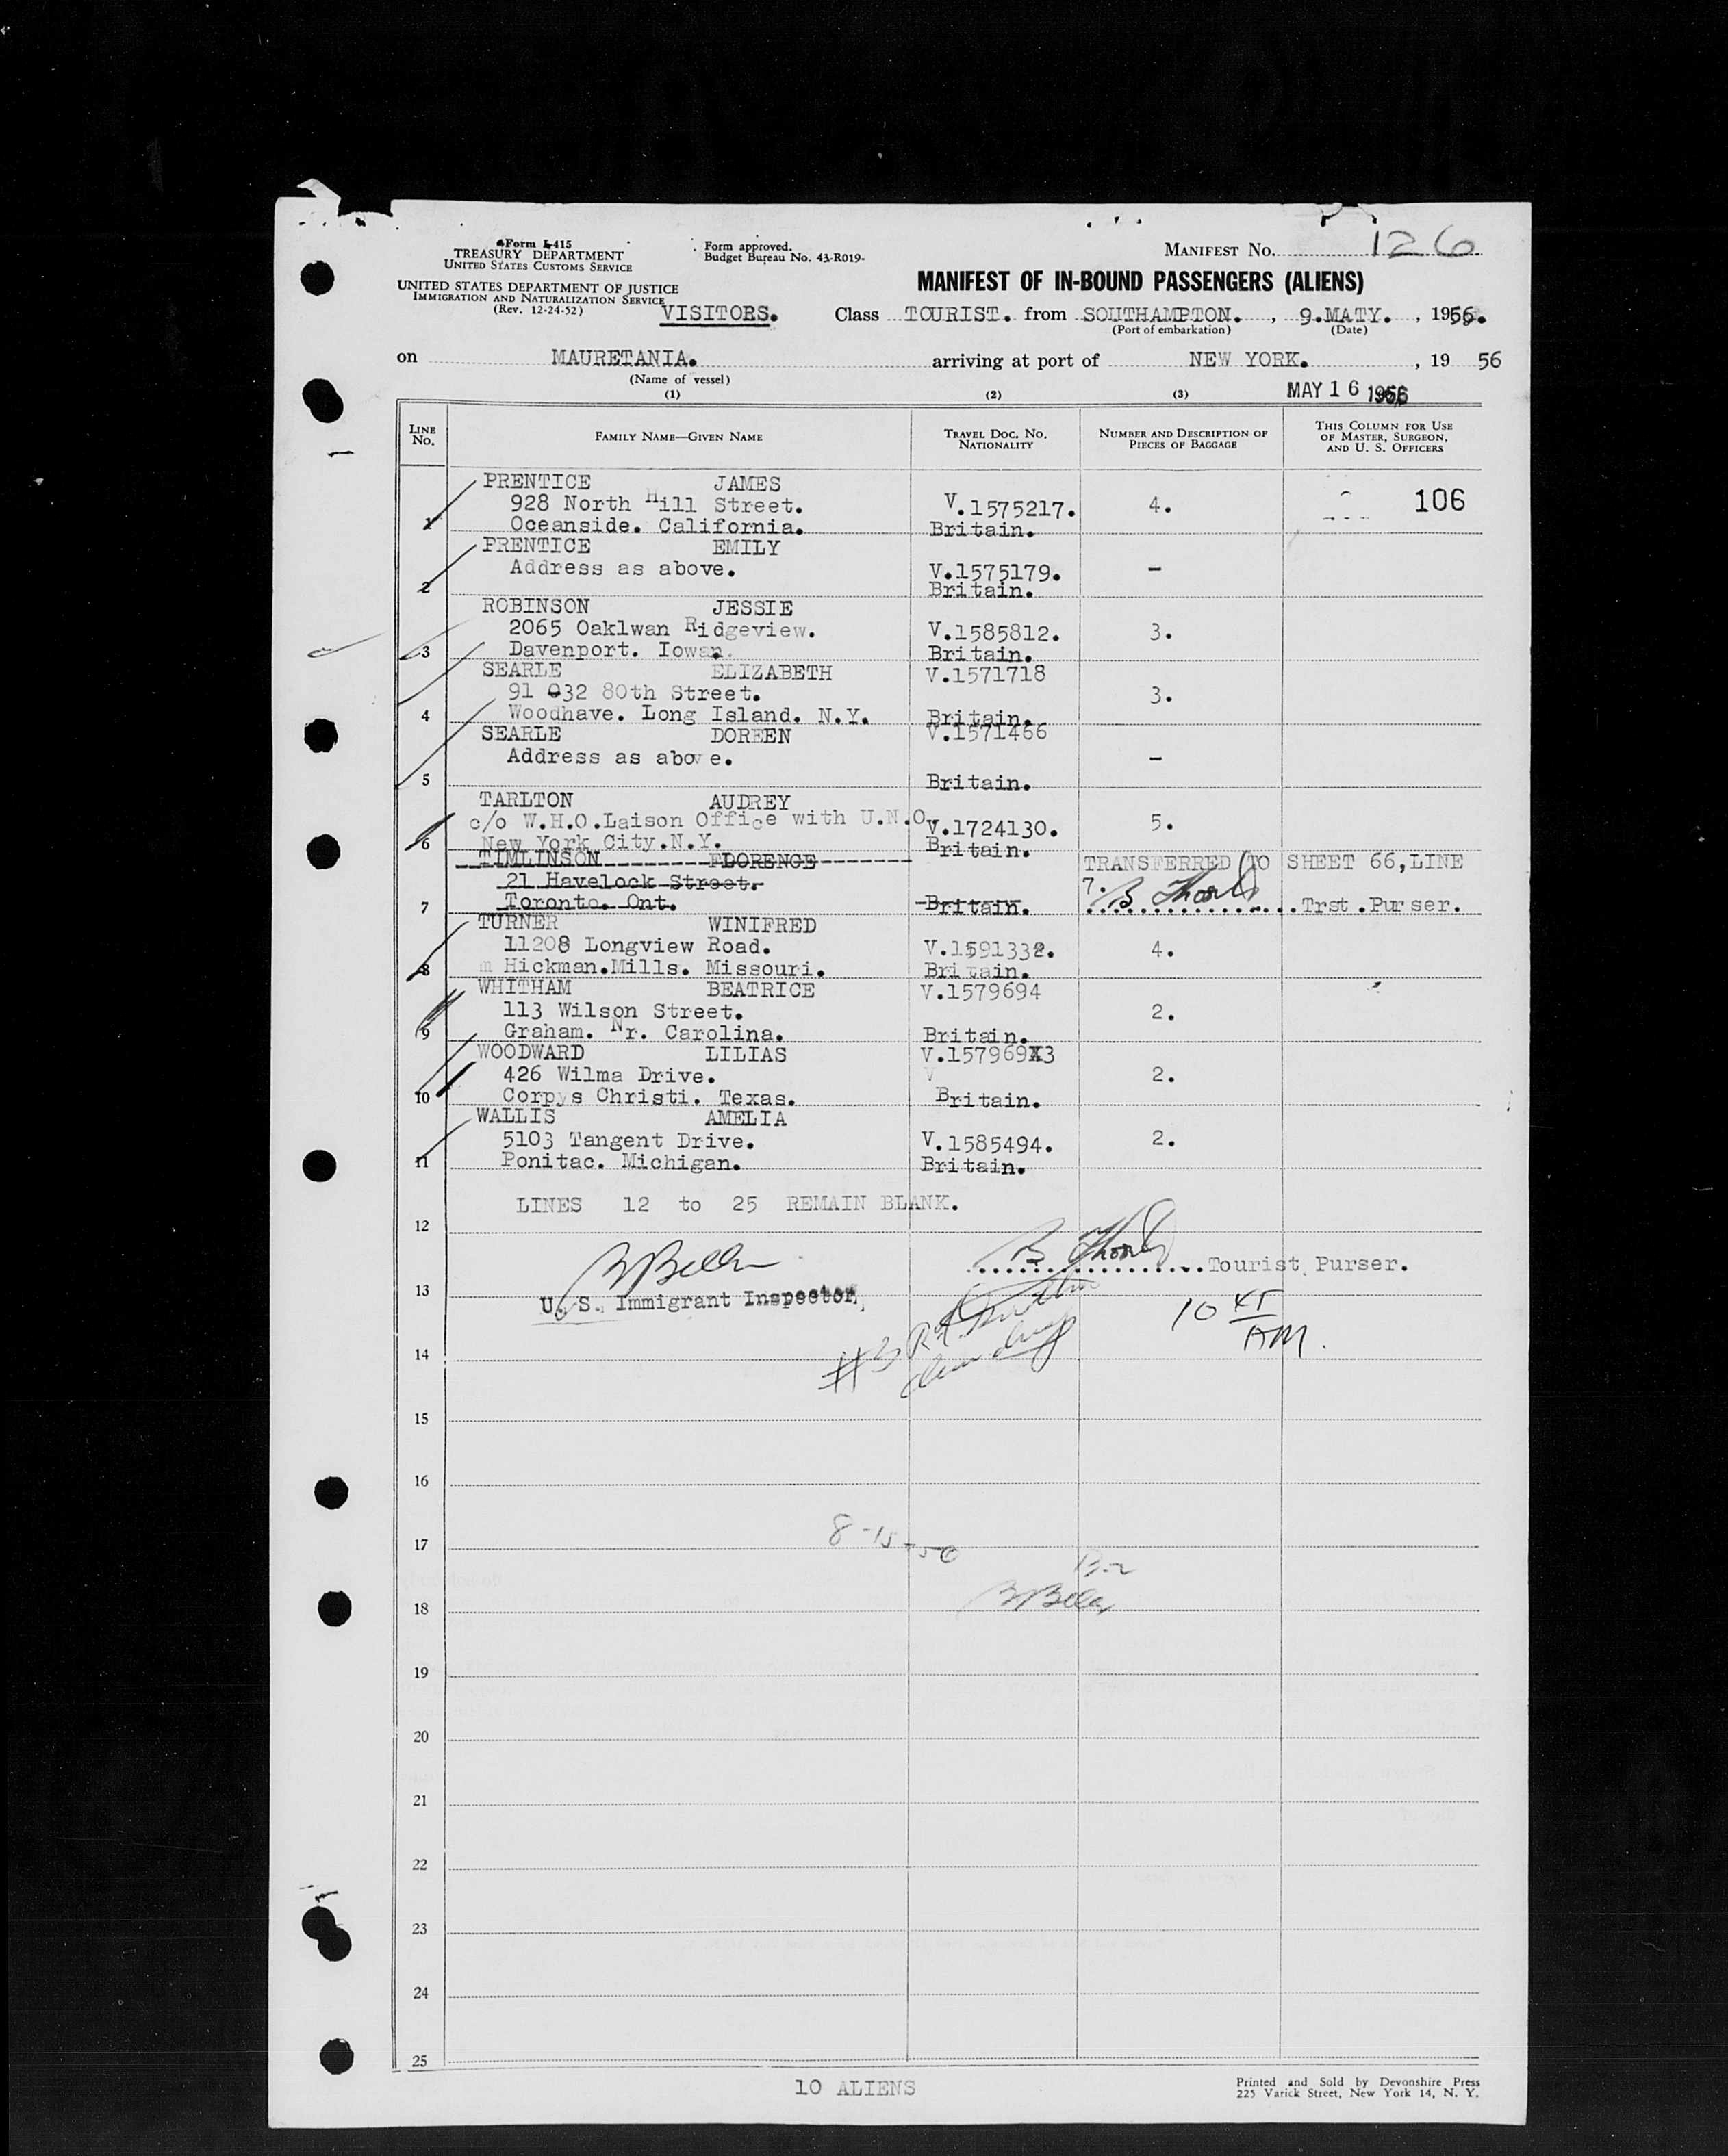 Form I-415
TREASURY DEPARTMENT
UNITED STATES CUSTOMS SERVICE
UNITED STATES DEPARTMENT OF JUSTICE
IMMIGRATION AND NATURALIZATION SERVICE
(Rev. 12-24-52)
VISITORS.
Form approved.
Budget Bureau No. 43-R019-
MANIFEST No. 126
MANIFEST OF IN-BOUND PASSENGERS (ALIENS)
Class TOURIST. from SOUTHAMPTON. , 9.MATY. , 1956.
(Port of embarkation) (Date)
on MAURETANIA. arriving at port of NEW YORK. , 19 56
(Name of vessel)
MAY 16 1956
(1) (2) (3)
LINE No. FAMILY NAME—GIVEN NAME TRAVEL DOC. NO. NATIONALITY NUMBER AND DESCRIPTION OF PIECES OF BAGGAGE THIS COLUMN FOR USE OF MASTER, SURGEON, AND U. S. OFFICERS
PRENTICE JAMES
928 North Hill Street. V.1575217. 4. 106
1 Oceanside. California. Britain.
PRENTICE EMILY
Address as above. V.1575179. -
2 Britain.
ROBINSON JESSIE
2065 Oaklwan Ridgeview. V.1585812. 3.
3 Davenport. Iowan. Britain.
SEARLE ELIZABETH V.1571718
91 032 80th Street. 3.
4 Woodhave. Long Island. N.Y. Britain.
SEARLE DOREEN V.1571466
Address as above. -
5 Britain.
TARLTON AUDREY
c/o W.H.O.Laison Office with U.N.O. V.1724130. 5.
6 New York City.N.Y. Britain.
TIMLINSON FLORENCE TRANSFERRED TO SHEET 66,LINE
21 Havelock Street. 7.
7 Toronto. Ont. Britain. Trst.Purser.
TURNER WINIFRED
11208 Longview Road. V.1591332. 4.
8 Hickman.Mills. Missouri. Britain.
WHITHAM BEATRICE V.1579694
113 Wilson Street. 2.
9 Graham. Nr. Carolina. Britain.
WOODWARD LILIAS V.157969X3
426 Wilma Drive. 2.
10 Corpys Christi. Texas. Britain.
WALLIS AMELIA
5103 Tangent Drive. V.1585494. 2.
11 Ponitac. Michigan. Britain.
LINES 12 to 25 REMAIN BLANK.
12
Tourist Purser.
13 U. S. Immigrant Inspector
10
AM.
14
15
16
17
18
19
20
21
22
23
24
25
10 ALIENS
Printed and Sold by Devonshire Press
225 Varick Street, New York 14, N. Y.